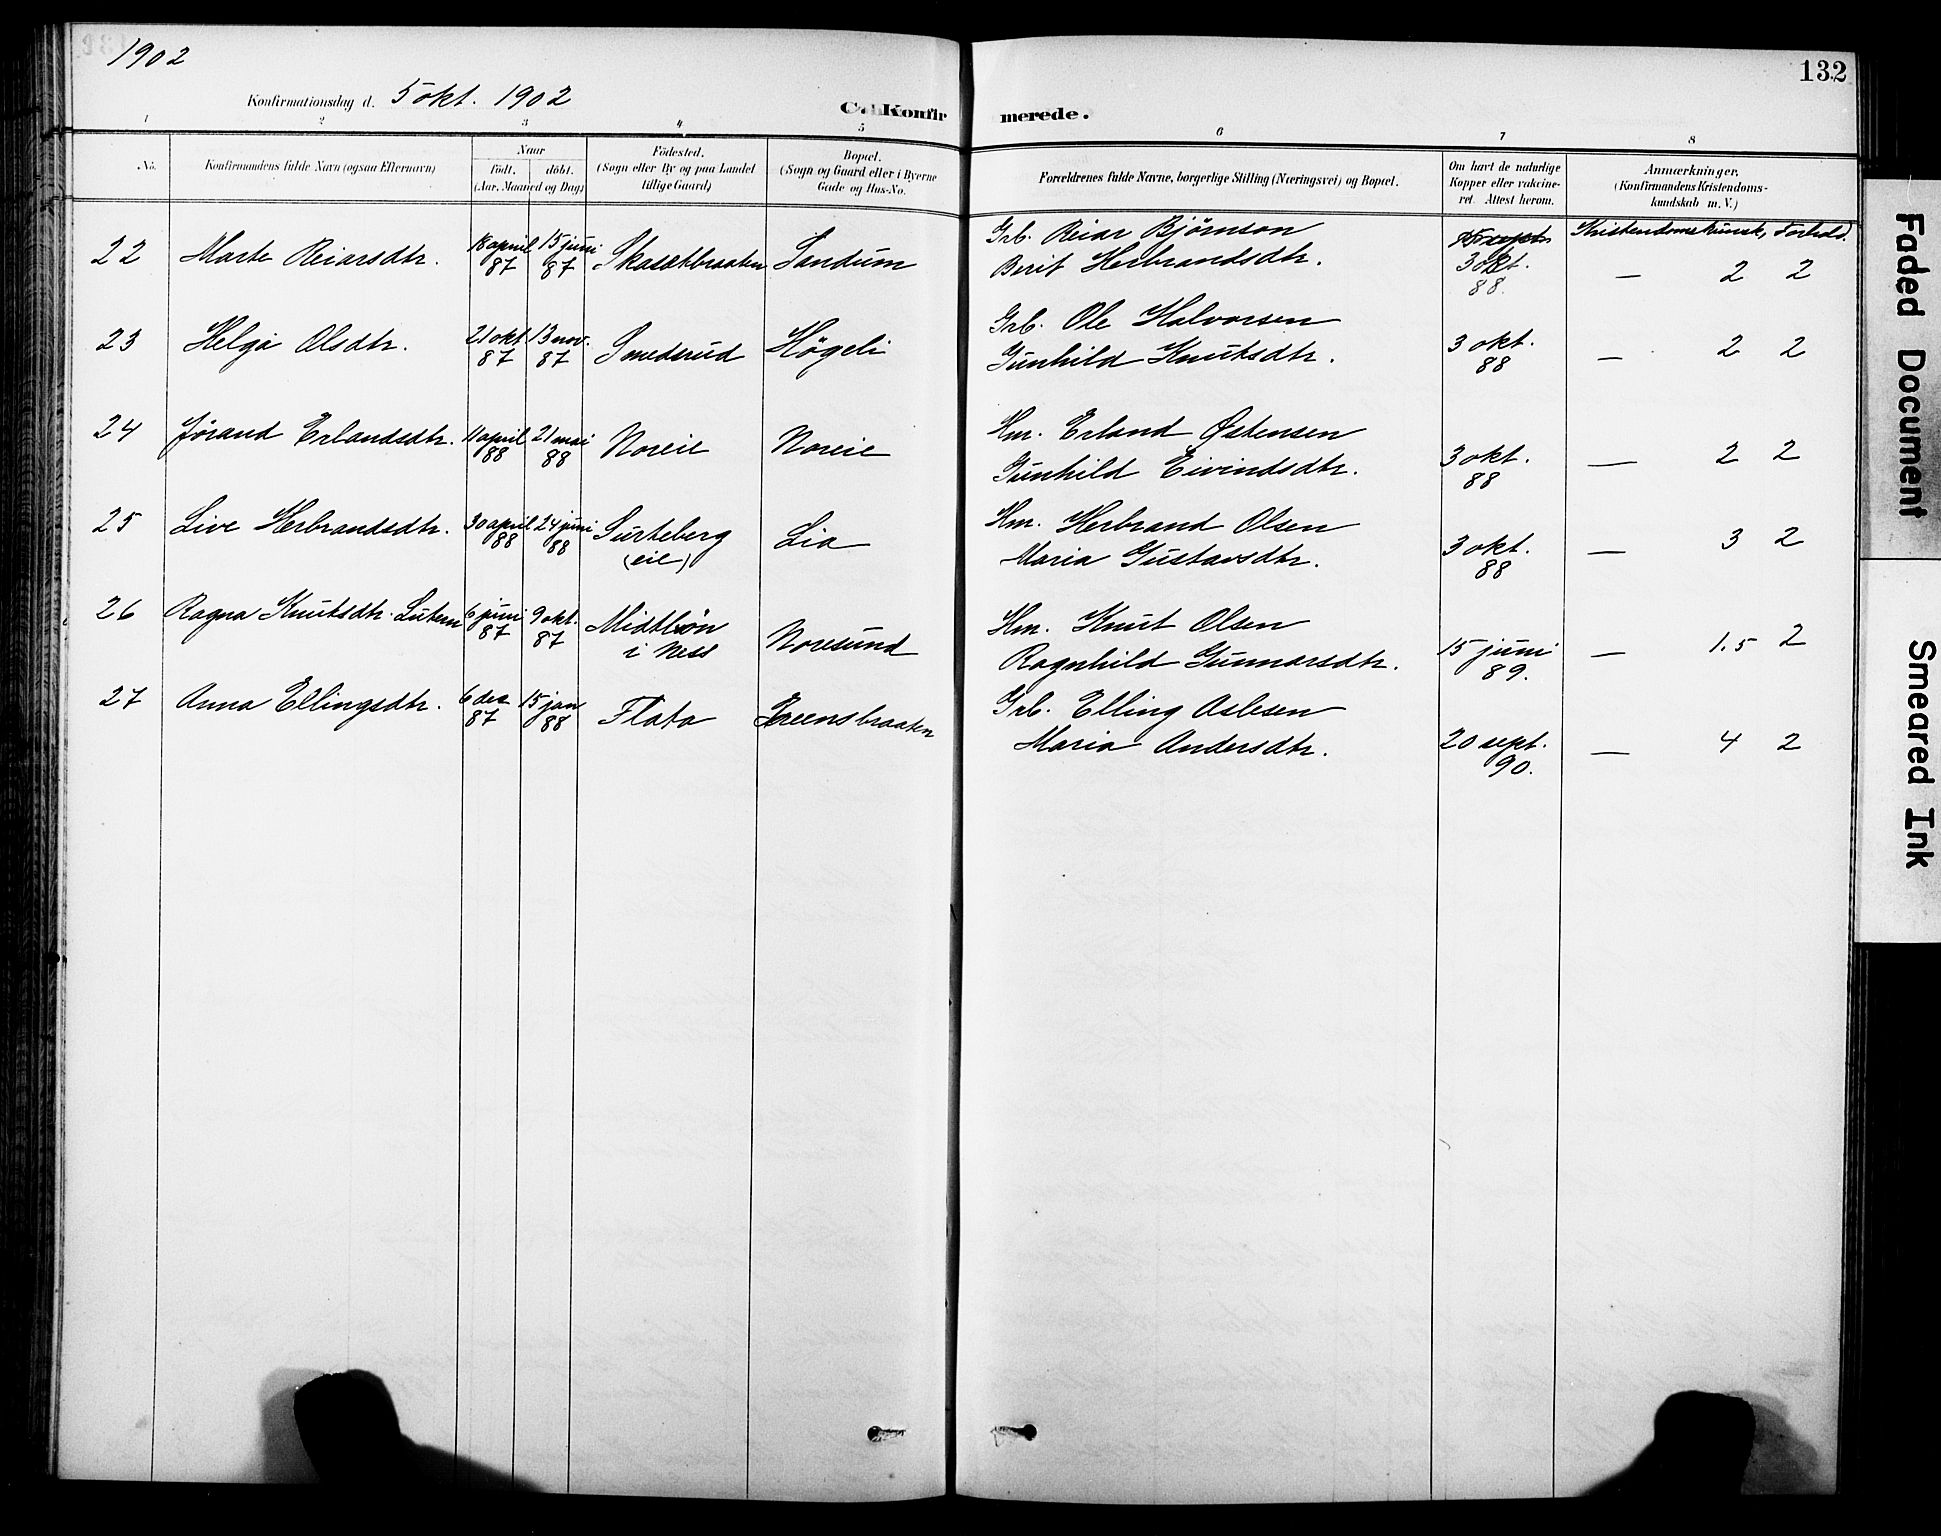 1902
132
Konfirmationsdag d. 5 okt. 1902
C. Konfirmerede.
1 2 3 4 5 6 7 8
No.
Konfirmandens fulde Navn (ogsaa Efternavn)
Naar
födt. döbt.
(Aar, Maaned og Dag)
Födested.
(Sogn eller By og paa Landet
tillige Gaard)
Bopæl.
(Sogn og Gaard eller i Byerne
Gade og Hus-No.
Forældrenes fulde Navne, borgerlige Stilling (Næringsvei) og Bopæl.
Om havt de naturlige
Kopper eller vakcine-
ret. Attest herom.
Anmærkninger.
(Konfirmandens Kristendoms-
kundskab m. V.)
Kristendomskunsk, Forhold.
22 Marte Reiarsdtr. 18 april 87 15 juni 87 Skasætbraaten Sandum Grb. Reiar Bjørnson
Berit Herbrandsdtr. 3 okt. 88. — 2 2
23 Helga Olsdtr. 21 okt 87 13 nov. 87 Smederud Høgeli Grb. Ole Halvorsen
Gunhild Knutsdtr. 3 okt. 88 — 2 2
24 Jørand Erlandsdtr. 11 april 88 21 mai 88 Noreie Noreie Hm. Erland Østensen
Gunhild Eivindsdtr. 3 okt. 88 — 2 2
25 Live Herbrandsdtr. 30 april 88 24 juni 88 Surteberg (eie) Lia Hm. Herbrand Olsen
Maria Gustavsdtr. 3 okt. 88 — 3 2
26 Ragna Knutsdtr. 6 juni 87 9 okt. 87 i Ness Noresund Hm. Knut Olsen
Ragnhild Gunnarsdtr. 15 juni 89. — 1.5 2
27 Anna Ellingsdtr. 6 des 87 15 jan 88 Flata Grb. Elling Aslesen
Maria Andersdtr. 20 sept. 90. — 4 2
Faded Document
Smeared Ink